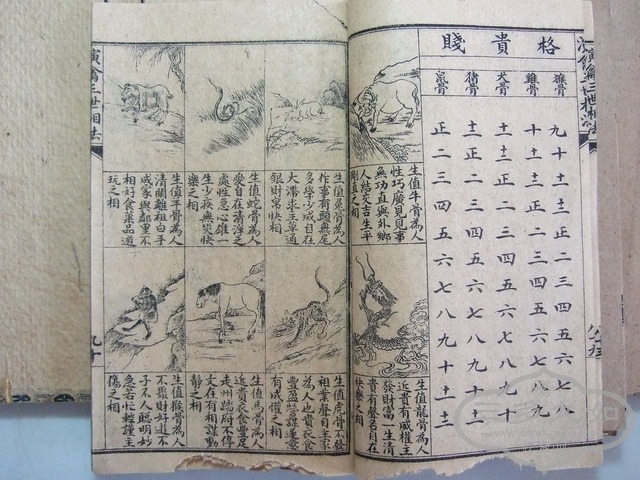 演禽三世相法
格貴賤
猴骨
九十十一十二正二三四五六七八
雞骨
十十一十二正二三四五六七八九
犬骨
十一十二正二三四五六七八九十
猪骨
十二正二三四五六七八九十十一
鼠骨
正二三四五六七八九十十一十二
生值牛骨為人
性巧廣見見事
無功直與外鄉
人結交吉生平
剛直之相
生值龍骨為人
近貴有威權主
發財富一生清
貴有聲名自在
快樂之相
生值兔骨為人
作事有頭無尾
多學少成自在
銀財帛快相
生值蛇骨為人
愛自在清淨之
處性急心雄一
生少疾無災快
樂之相
生值羊骨為人
清閑離祖白手
成家與鄰里不
相好食菓品遊
玩之相
生值虎骨不發
祖業聲自主家
為人也貴衣食
豐盈
有威權之相
生值馬骨為人
近貴衣食豐足
走州踏府不停
靜之相
生值猴骨為人
不聚財好遊不
子不人聰明妙
傷之相
演禽三世相法
九十